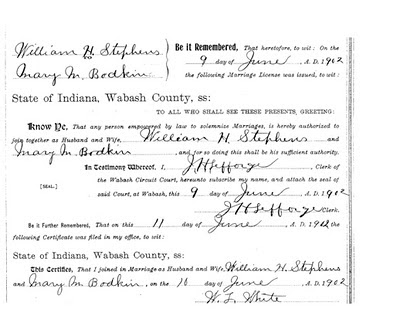 William H. Stephens
to
Mary M. Bodkin
Be it Remembered, That heretofore, to wit: On the
9 day of June, A. D. 1902
the following Marriage License was issued, to wit:
State of Indiana, Wabash County, ss:
TO ALL WHO SHALL SEE THESE PRESENTS, GREETING:
Know Ye, That any person empowered by law to solemnize Marriages, is hereby authorized to
join together as Husband and Wife, William H. Stephens and
Mary M. Bodkin, and for so doing this shall be his sufficient authority.
In Testimony Whereof, I, Clerk of
the Wabash Circuit Court, hereunto subscribe my name, and attach the seal of
[SEAL] said Court, at Wabash, this 9 day of June A. D. 1902
Clerk.
Be it Further Remembered, That on this 11 day of June, A. D. 1902 the
following Certificate was filed in my office, to wit:
State of Indiana, Wabash County, ss:
This Certifies, That I joined in Marriage as Husband and Wife, William H. Stephens
and Mary M. Bodkin, on the 10 day of June A. D. 1902
W. L. White